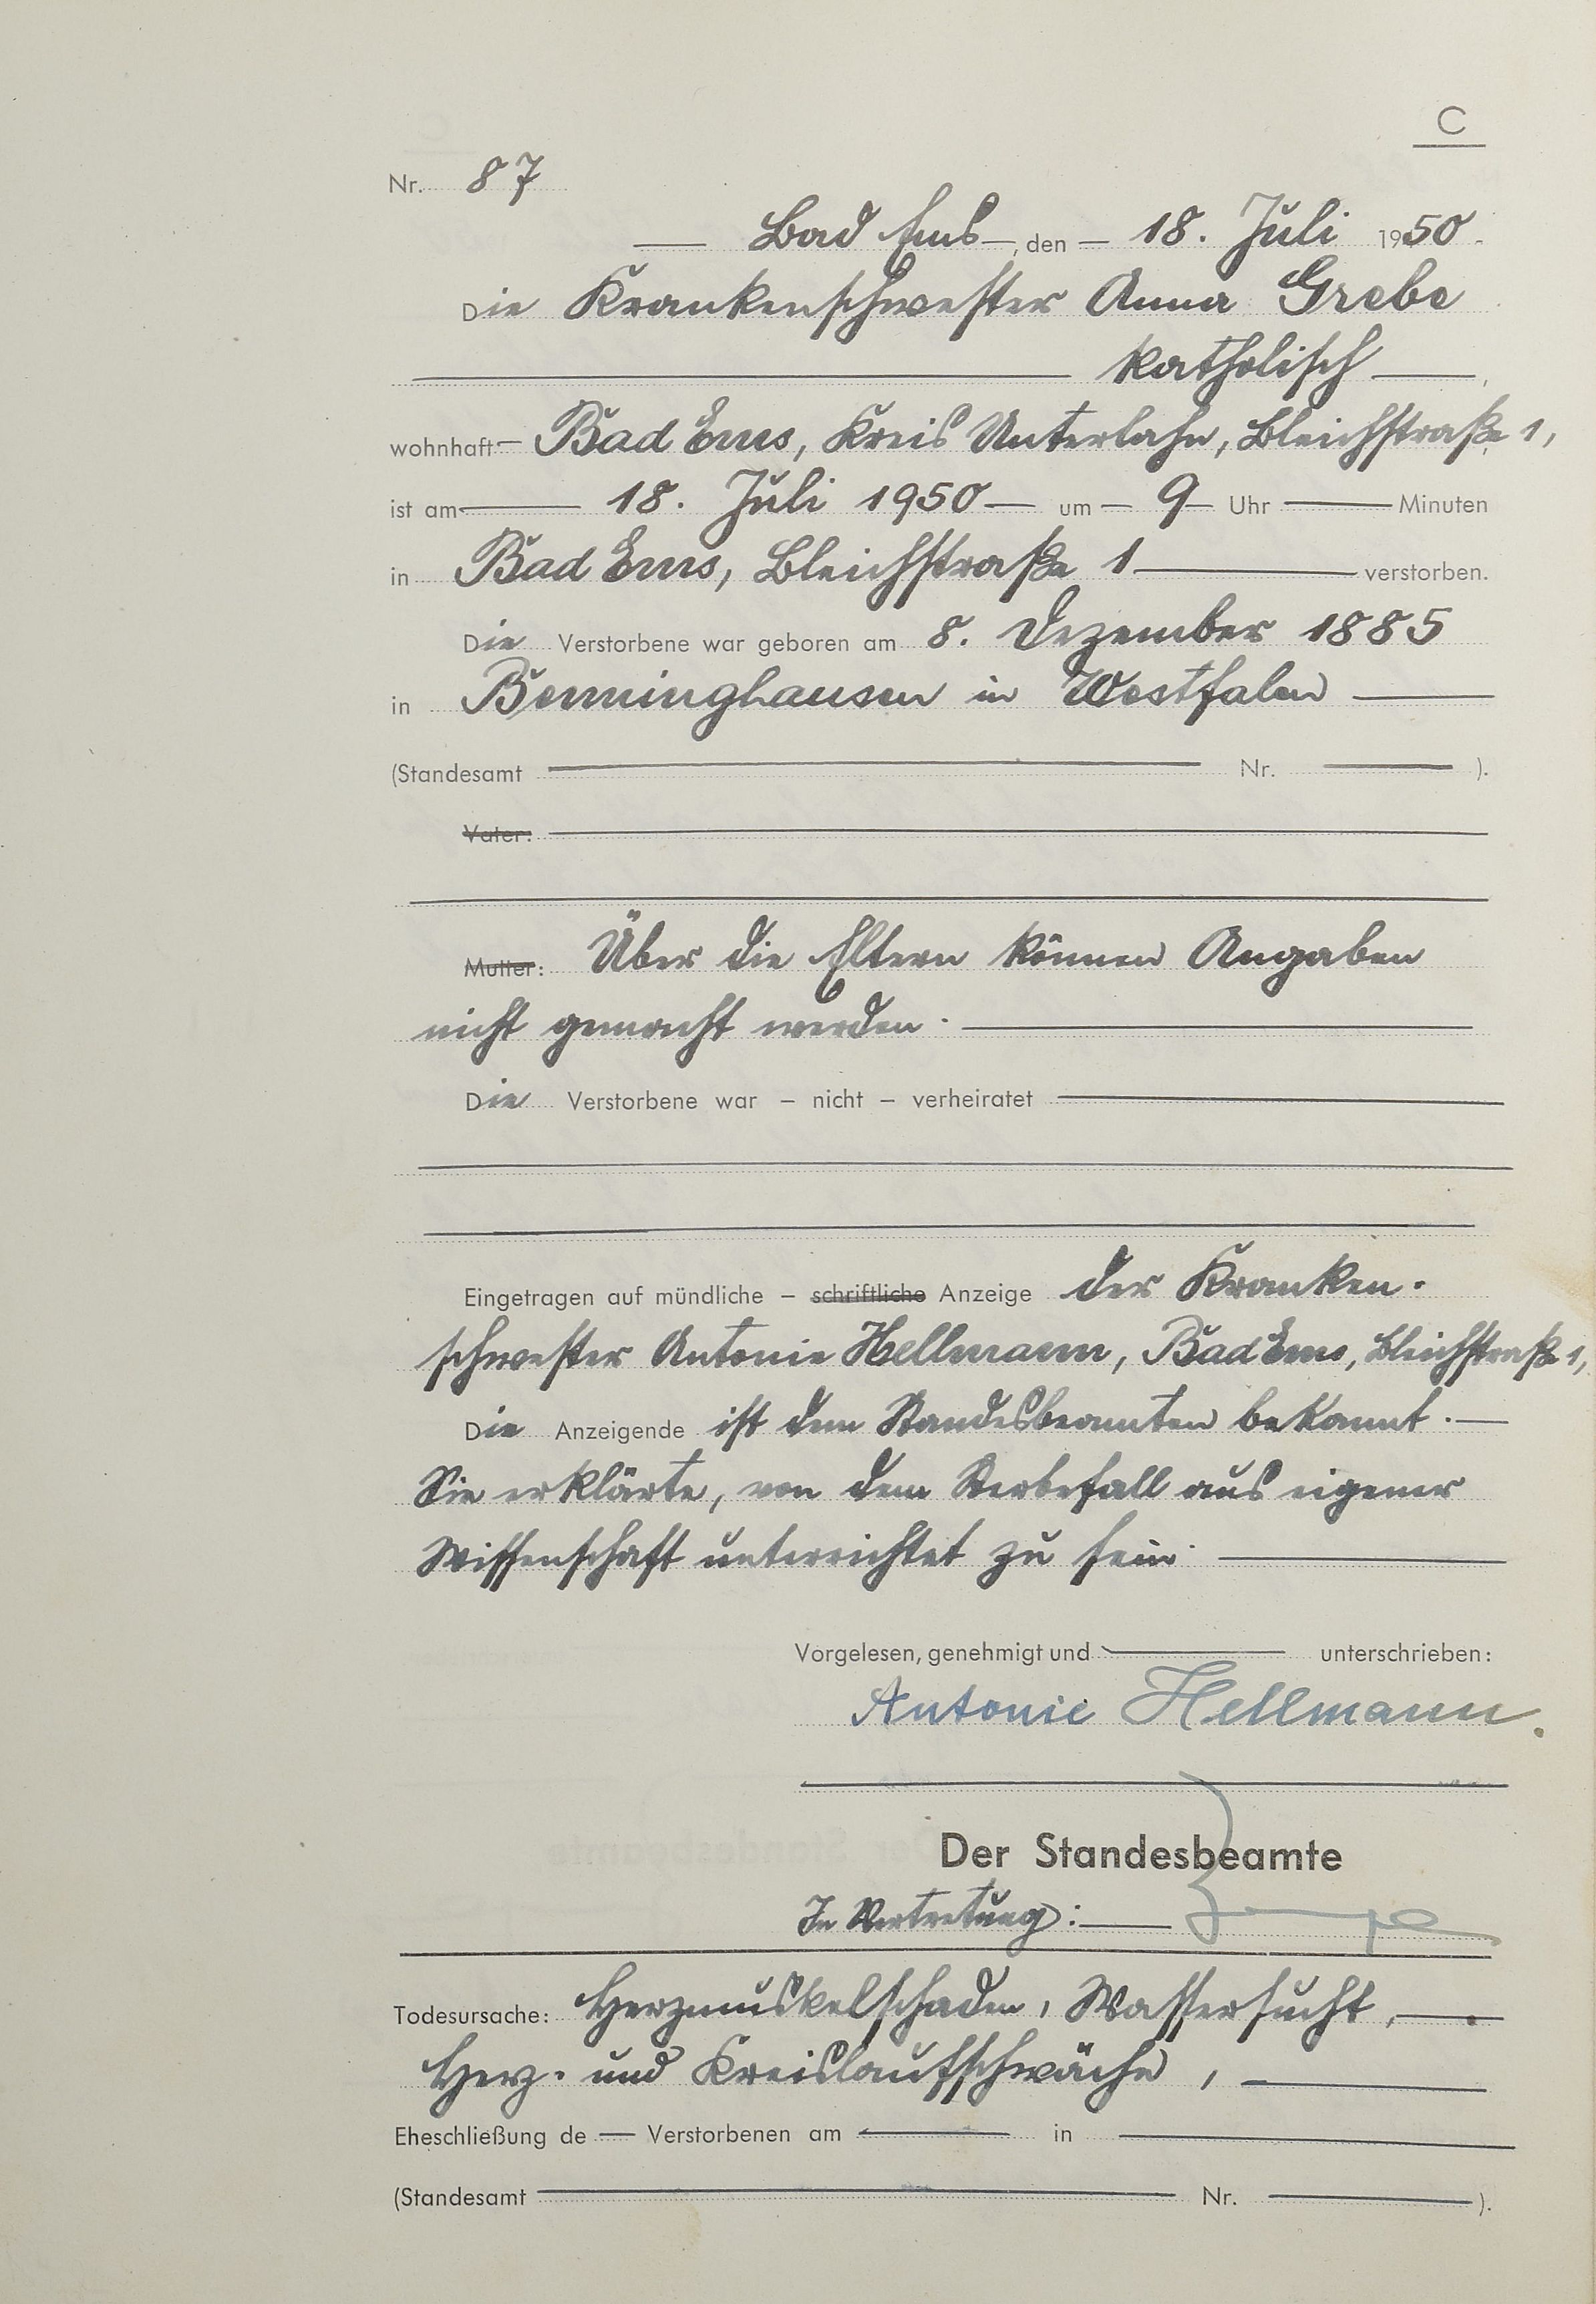 C
Nr. 87
Bad Ems, den 18. Juli 1950.
Die Krankenschwester Anna Grebe
katholisch,
wohnhaft Bad Ems, Kreis Unterlahn, Bleichstraße 1,
ist am 18. Juli 1950 um 9 Uhr Minuten
in Bad Ems, Bleichstraße 1 verstorben.
Die Verstorbene war geboren am 8. Dezember 1885
in Benninghausen in Westfalen
(Standesamt Nr. ).
Vater:
Mutter: Über die Eltern können Angaben
nicht gemacht werden.
Die Verstorbene war – nicht – verheiratet
Eingetragen auf mündliche – schriftliche Anzeige der Kranken-
schwester Antonie Hellmann, Bad Ems, Bleichstraße 1,
Die Anzeigende ist dem Standesbeamten bekannt.
Sie erklärte, von dem Sterbefall aus eigener
Wissenschaft unterrichtet zu sein.
Vorgelesen, genehmigt und unterschrieben:
Antonie Hellmann.
Der Standesbeamte
In Vertretung:
Todesursache: Herzmuskelschaden, Wassersucht,
Herz- und Kreislaufschwäche,
Eheschließung de Verstorbenen am in
(Standesamt Nr. ).